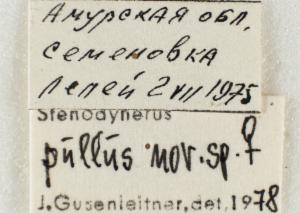 Амурская обл.
Семеновка
Лелей 2 VII 1975
Stenodynerus
püllüs nov. sp. ♀
J.Gusenleitner,det,1978